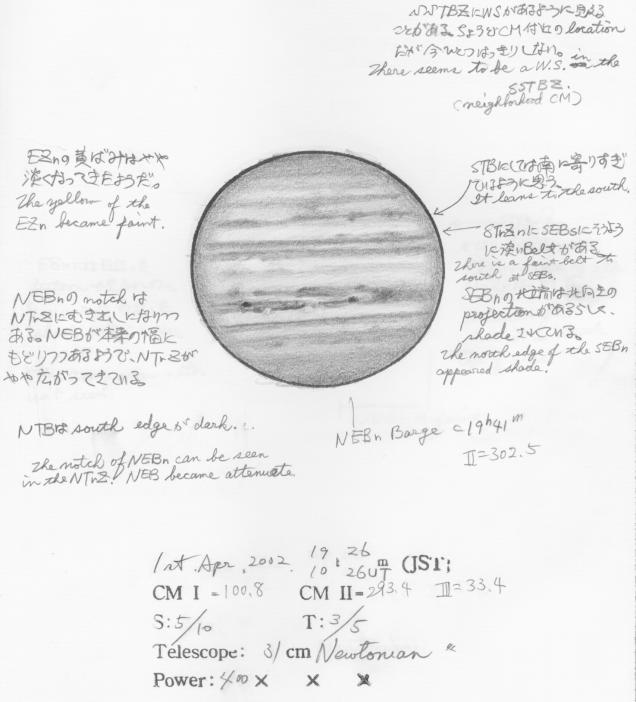 SSTBZにWSがあるように見える
ことがある。ちょうどCM付近のlocation
だが今ひとつはっきりしない。
There seems to be a W.S. in the
SSTBZ.
(neighborhood CM)
EZnの黄ばみはやや
淡くなってきたようだ。
The yellow of the
EZn became faint.
STBにしては南に寄りすぎ
ているように思う。
It leans to the south.
STrZnにSEBsにそうよう
に淡いBeltがある
There is a faint belt to
south of SEBs.
SEBnの北端は北向きの
projectionがあるらしく、
shadeされている。
The north edge of the SEBn
appeared shade.
NEBnのnotchは
NTrZにむき出しになりつつ
ある。NEBが本来の幅に
もどりつつあるようで、NTrZが
やや広がってきている。
NTBはsouth edgeがdark.
The notch of NEBn can be seen
in the NTrZ. NEB became attenuate
NEBn Barge c 19h41m
II=302.5
1st. Apr, 2002. 19:26 m (JST)
10 26 UT
CM I =100.8 CM II=293.4 III=33.4
S:5/10 T:3/5
Telescope: 31 cm Newtonian
Power:400 × × ×